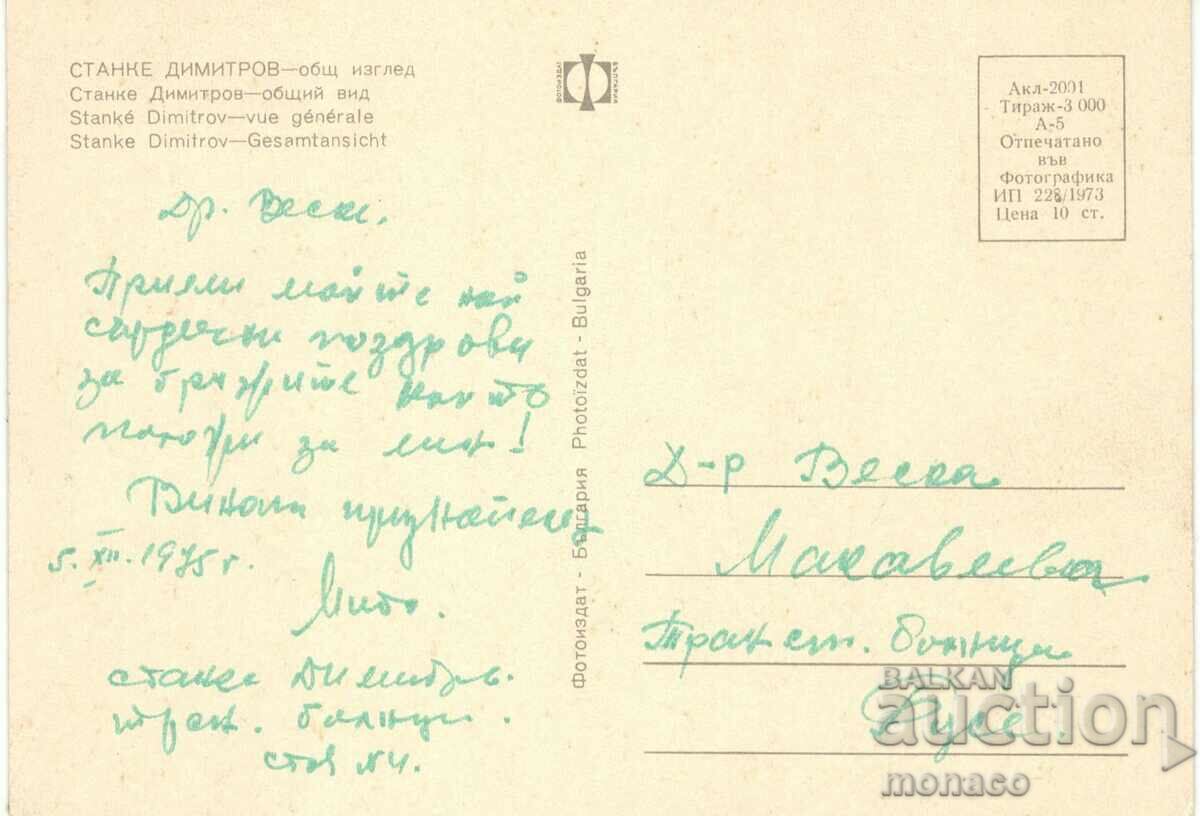 СТАНКЕ ДИМИТРОВ—общ изглед
Станке Димитров—общий вид
Stanké Dimitrov—vue générale
Stanke Dimitrov—Gesamtansicht
ФОТОИЗДАТ
БЪЛГАРИЯ
Акл-2001
Тираж-3 000
А-5
Отпечатано
във
Фотографика
ИП 228/1973
Цена 10 ст.
Др. Веска,
Приеми моите най
сърдечни поздрави
за грижите които
положи за мен!
Винаги признателен
5. XII. 1975 г.
Мито.
Станке Димитров.
тран. болници.
стая №4.
Фотоиздат - България Photoïzdat - Bulgaria
Д-р Веска
Макавеева
Трансп. болница
Русе.
BALKAN
auction
monaco